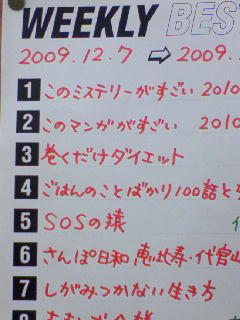 WEEKLY BES
2009.12.7 ⇨ 2009.
1 このミステリーがすごい 2010
2 このマンガがすごい 2010
3 巻くだけダイエット
4 ごはんのことばかり100話と
5 SOSの猿
6 さんぽ日和 恵比寿・代官山
7 しがみつかない生き方
8